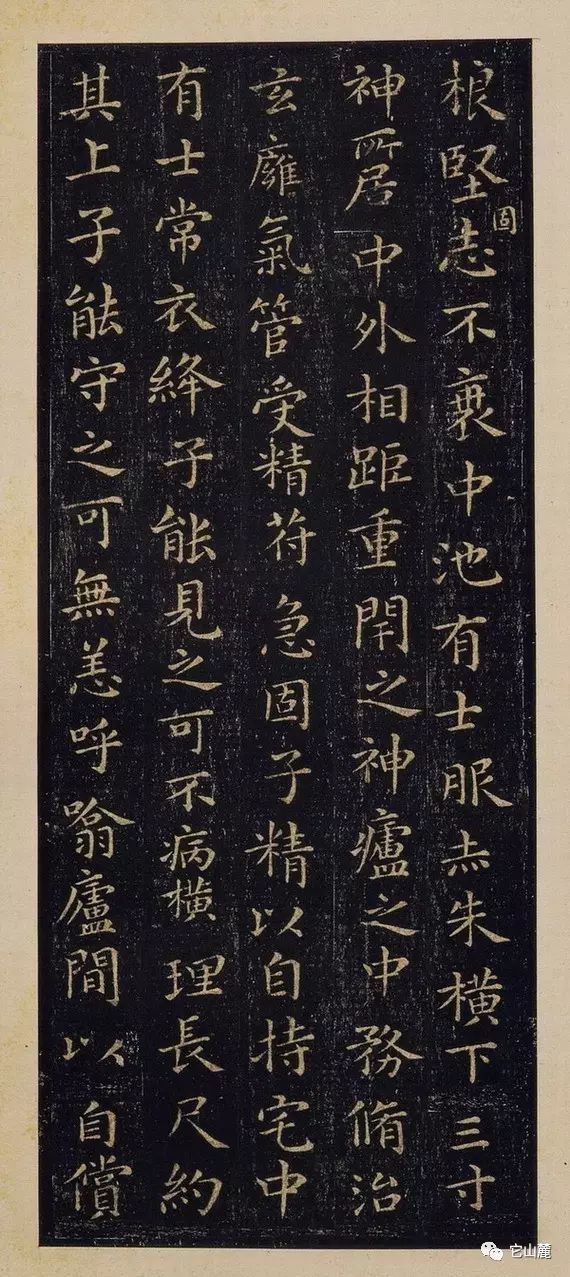 根堅固志不衰中池有士服赤朱橫下三寸
神所居中外相距重閇之神廬之中務脩治
玄廱氣管受精苻急固子精以自持宅中
有士常衣絳子能見之可不病橫理長尺約
其上子能守之可無恙呼噏廬間以自償
它山麓